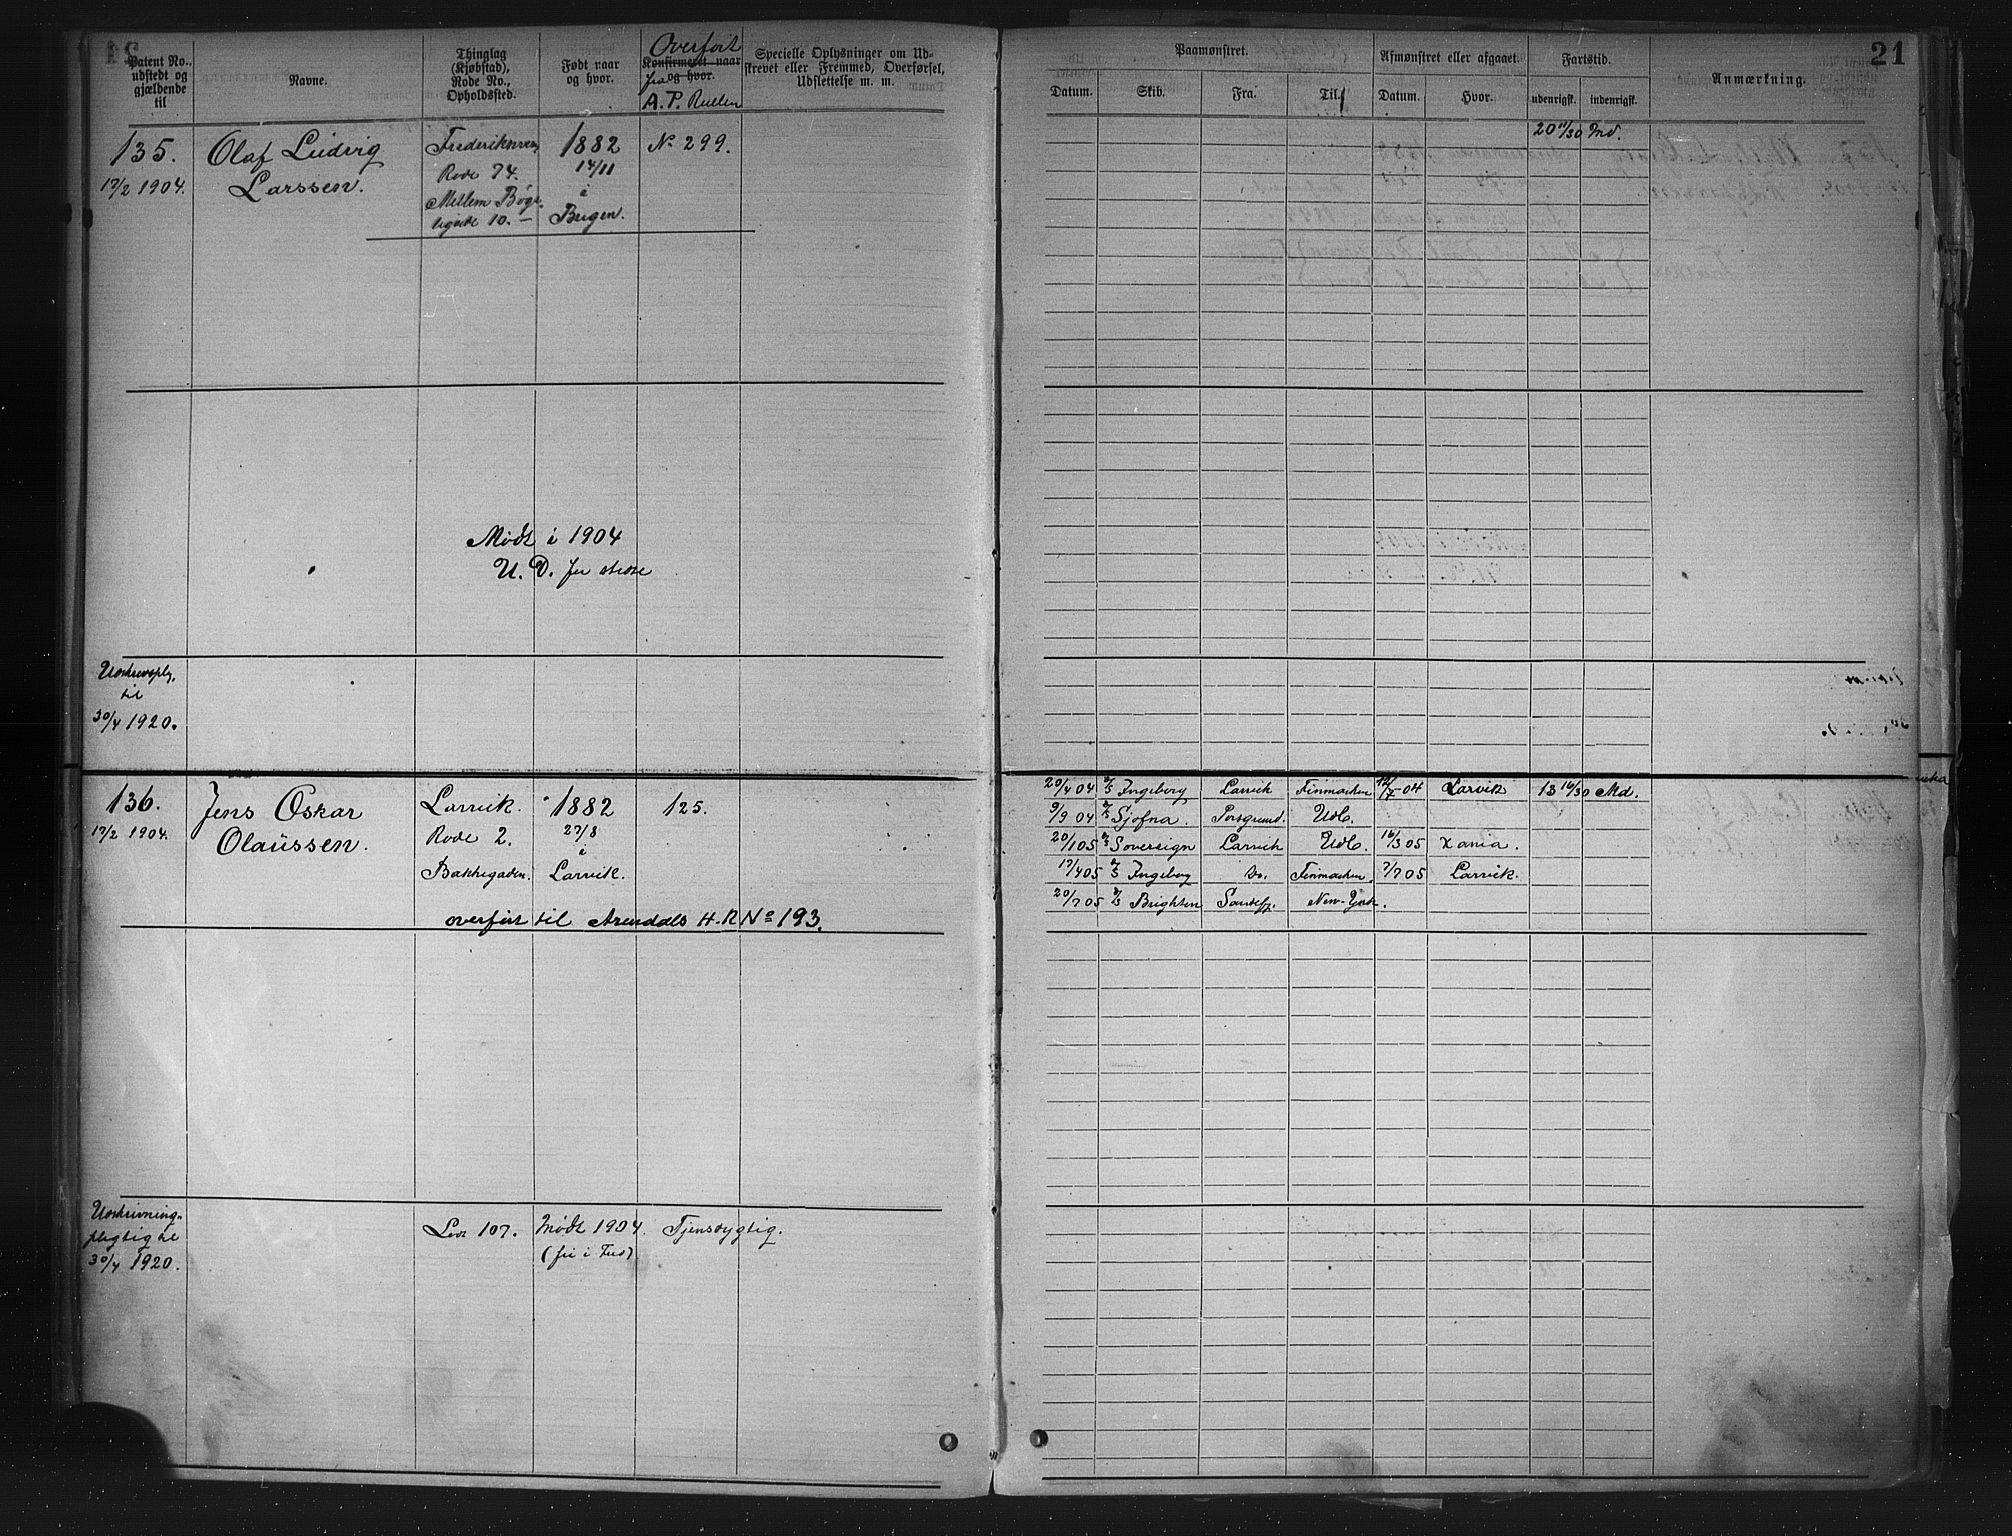 Patent No.,
udstedt og
gjældende
til
Navne.
Thinglag
(Kjøbstad),
Rode No.,
Opholdssted.
Født naar
og hvor.
Overført
Konfirmeret naar
fra og hvor.
A. P. Rullen
Specielle Oplysninger om Ud-
skrevet eller Fremmed, Overførsel,
Udslettelse m. m.
135.
17/2 1904.
Olaf Ludvig
Larssen.
Frederiksværn,
Rode 74.
Mellem Bøge-
ligade 10. —
1882
14/11
i
Bergen.
No 299.
Mødt i 1904
U. D. for
Udskrevspl.
til
30/4 1920.
136.
17/2 1904.
Jens Oskar
Olaussen.
Larvik.
Rode 2.
Bakkegaden.
1882
27/8
i
Larvik.
125.
overført til Arendals H.R No 193.
Udskrivnings-
pligtig til
30/4 1920.
Lod 107.
Mødt 1904.
(fri i Fred)
Tjenstdygtig.
21
Paamønstret.
Afmønstret eller afgaaet.
Fartstid.
Anmærkning.
Datum.
Skib.
Fra.
Til.
Datum.
Hvor.
udenrigsk.
indenrigsk.
20 11/30 Md.
20/4 04 Ingeborg Larvik Finmarken 12/7 04 Larvik 13 16/30 Md.
9/9 04 Sjofna. Porsgrund. Udl.
20/1 05 Sovereign Larvik Udl. 16/3 05 Xania.
17/4 05 Ingeborg Do. Finmarken. 7/7 05 Larvik.
20/7 05 Brighton Sandefj. New-York.